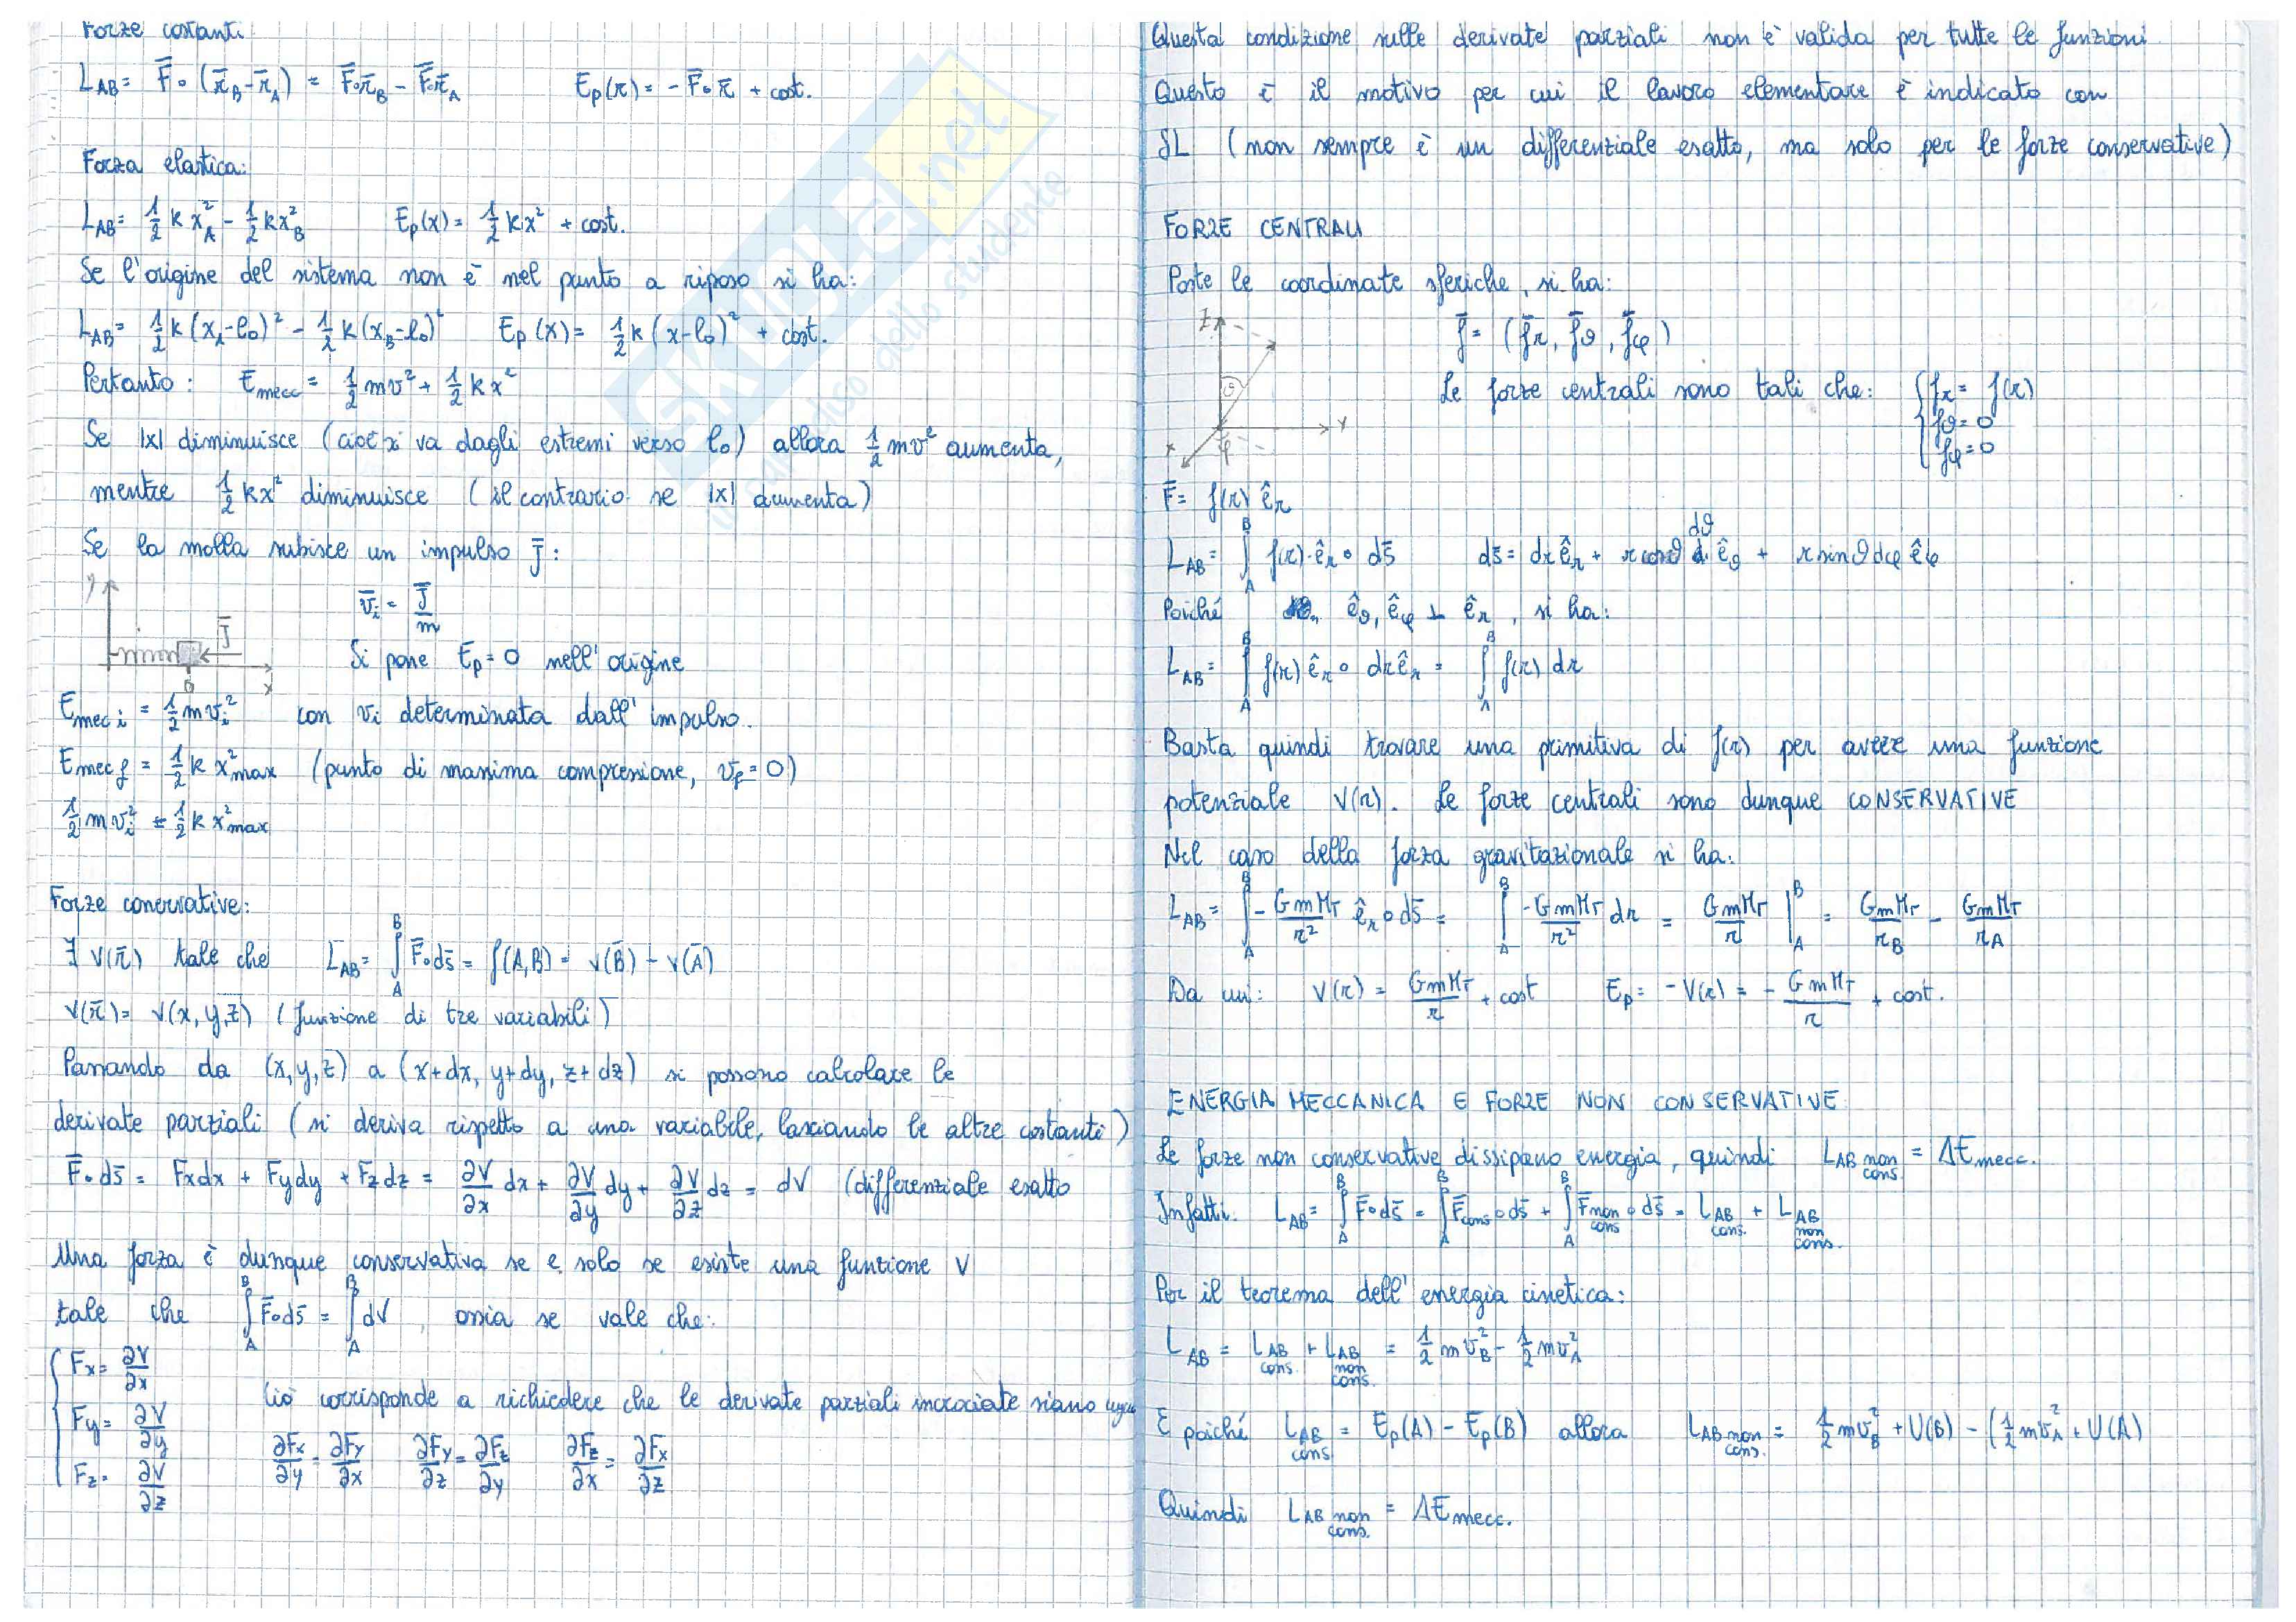 Forze costanti
L_AB = F̄∘(r̄_B - r̄_A) = F̄∘r̄_B - F̄∘r̄_A    E_p(r) = -F̄∘r̄ + cost.
Forza elastica:
L_AB = 1/2 k x_A² - 1/2 k x_B²    E_p(x) = 1/2 k x² + cost.
Se l'origine del sistema non è nel punto a riposo si ha:
L_AB = 1/2 k (x_A - l₀)² - 1/2 k (x_B - l₀)²    E_p(x) = 1/2 k (x - l₀)² + cost.
Pertanto: E_mecc = 1/2 mv² + 1/2 k x²
Se |x| diminuisce (cioè x va dagli estremi verso l₀) allora 1/2 mv² aumenta,
mentre 1/2 kx² diminuisce (il contrario se |x| aumenta)
Se la molla subisce un impulso J̄:
y J̄ 0 x
v̄_i = J̄/m
Si pone E_p = 0 nell'origine
E_mec i = 1/2 m v_i² con v_i determinata dall'impulso.
E_mec f = 1/2 k x²_max (punto di massima compressione, v_f = 0)
1/2 m v_i² = 1/2 k x²_max
Forze conervative:
∃ V(r̄) tale che L_AB = ∫_A^B F̄∘ds̄ = f(A,B) = V(B̄) - V(Ā)
V(r̄) = V(x,y,z) (funzione di tre variabili)
Passando da (x,y,z) a (x+dx, y+dy, z+dz) si possono calcolare le
derivate parziali (si deriva rispetto a una variabile, lasciando le altre costanti)
F̄∘ds̄ = Fxdx + Fydy + Fzdz = ∂V/∂x dx + ∂V/∂y dy + ∂V/∂z dz = dV (differenziale esatto
Una forza è dunque conservativa se e solo se esiste una funzione V
tale che ∫_A^B F̄∘ds̄ = ∫_A^B dV, ossia se vale che:
{ Fx = ∂V/∂x
Fy = ∂V/∂y
Fz = ∂V/∂z
Ciò corrisponde a richiedere che le derivate parziali incrociate siano
∂Fx/∂y = ∂Fy/∂x    ∂Fy/∂z = ∂Fz/∂y    ∂Fz/∂x = ∂Fx/∂z
Questa condizione sulle derivate parziali non è valida per tutte le funzioni
Questo è il motivo per cui il lavoro elementare è indicato con
δL (non sempre è un differenziale esatto, ma solo per le forze conservative)
FORZE CENTRALI
Poste le coordinate sferiche, si ha:
z θ y x φ
f̄ = (f̄r, f̄θ, f̄φ)
Le forze centrali sono tali che: { fr = f(r)
fθ = 0
fφ = 0
F̄ = f(r) ê_r
L_AB = ∫_A^B f(r)·ê_r∘ds̄    ds̄ = dr ê_r + r cosθ dθ ê_θ + r sinθ dφ ê_φ
Poiché ê_θ, ê_φ ⊥ ê_r, si ha:
L_AB = ∫_A^B f(r) ê_r∘dr ê_r = ∫_A^B f(r) dr
Basta quindi trovare una primitiva di f(r) per avere una funzione
potenziale V(r). Le forze centrali sono dunque CONSERVATIVE
Nel caso della forza gravitazionale si ha:
L_AB = ∫_A^B - GmM_T/r² ê_r∘ds̄ = ∫_A^B -GmM_T/r² dr = GmM_T/r |_A^B = GmM_T/r_B - GmM_T/r_A
Da cui: V(r) = GmM_T/r + cost    E_p = -V(r) = - GmM_T/r + cost.
ENERGIA MECCANICA E FORZE NON CONSERVATIVE
Le forze non conservative dissipano energia, quindi L_AB non cons. = ΔE_mecc.
Infatti: L_AB = ∫_A^B F̄∘ds̄ = ∫_A^B F̄_cons∘ds̄ + ∫_A^B F̄_non cons∘ds̄ = L_AB cons. + L_AB non cons.
Per il teorema dell'energia cinetica:
L_AB = L_AB cons. + L_AB non cons. = 1/2 mv_B² - 1/2 mv_A²
E poiché L_AB cons = E_p(A) - E_p(B) allora L_AB non cons. = 1/2 mv_B² + U(B) - (1/2 mv_A² + U(A)
Quindi L_AB non cons. = ΔE_mecc.
SKUOLA.net
dello studente